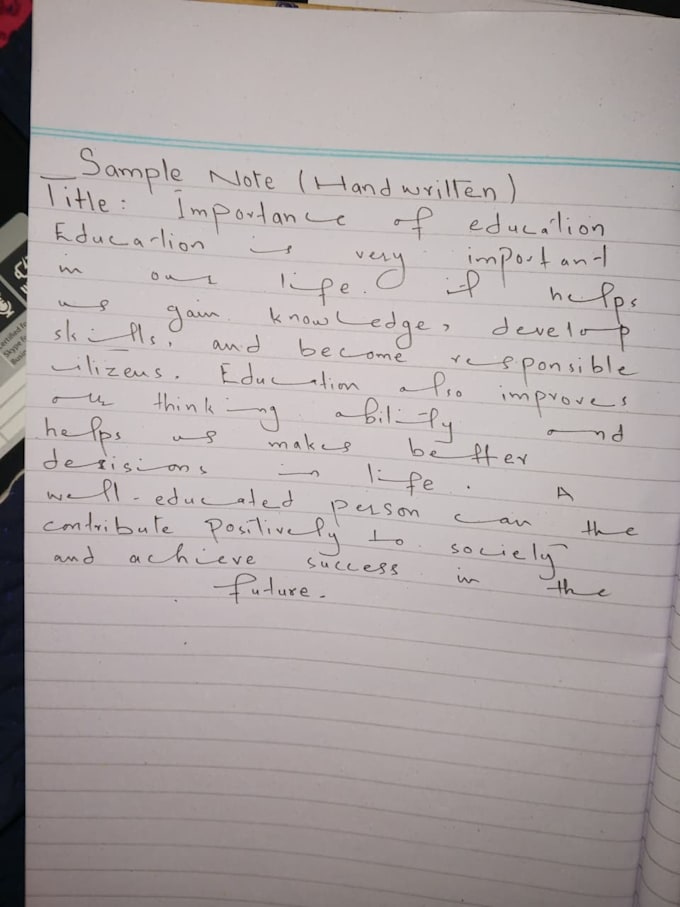 Sample Note (Handwritten)
Title: Importance of education
Education is very important
in our life. it helps
us gain knowledge, develop
skills, and become responsible
citizens. Education also improves
our thinking ability and
helps us makes better
desisions in life. A
well-educated person can the
contribute positively to society
and achieve success in the
future.